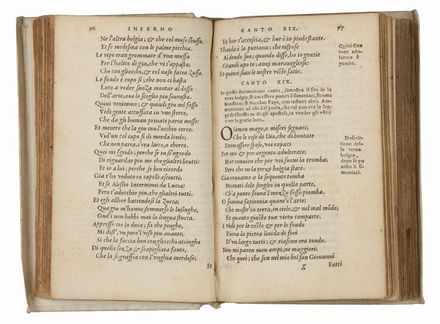 96 INFERNO
Ne l'altra bolgia; & che col muso sbuffa,
Et se medesma con le palme picchia.
Le ripe eran grommate d'una muffa
Per l'halito di giu, che vi s'appasta,
Che con gliocchi, & col naso facea Zuffa.
Lo fondo è cupo si; che non ci basta
Loco a veder sanza montar al dosso
De l'arco, oue lo scoglio piu sourasta.
Quiui venimmo; & quindi giu nel fosso
Vidi gente attuffata in uno sterco,
Che da gli human priuati parea mosso:
Et mentre ch'io la giu con l'occhio cerco;
Vid'un col capo si di merda lordo;
Che non parea, s'era laico, o cherco.
Quei mi sgridò; perche se tu si'ngordo
Di riguardar piu me che glialtri brutti?
Et io a lui; perche se ben ricordo
Gia t'ho veduto co capelli asciutti;
Et se Alessio Interminei da Lucca:
Pero t'adocchio piu, che glialtri tutti.
Et egli alhor battendosi la Zucca;
Qua giu m'hanno sommerso le lusinghe,
Ond'i non hebbi mai la lingua stucca.
Appresso cio lo duca; fa che pinghe,
Mi diss', un poco'l viso piu auante;
Si che la faccia ben con gliocchi attinghe
Di quella sozza & scapigliata fante;
Che la si graffia con l'unghia merdose;
Et
CANTO XIX. 97
Et hor s'accoscia, & hor è in piede stante.
Thaida è la puttana; che rispose
Al drudo suo; quando disse, ho io gratie
Grandi apo te: anzi marauigliose.
Et quinci sian le nostre viste satie.
CANTO XIX.
O Simon mago, o miseri seguaci;
Che le cose di Dio, che di bontate
Deon essere spose, voi rapaci
Per oro & per argento adulterate;
Hor conuien che per voi suoni la tromba;
Pero che ne la terza bolgia state.
Gia erauamo a la seguente tomba
Montati de lo scoglio in quella parte,
Ch'a punto soura'l mezzo fosso piomba.
O somma sapientia quant'è l'arte,
Che mostri in terra, in cielo, & nel mal mondo;
Et quanto giusto tua virtu comparte.
I vidi per le coste, & per lo fondo
Piena la pietra liuida di fori
D'un largo tutti; & ciascun era tondo.
Non mi parean meno ampi, ne maggiori,
Che quei; che son nel mio bel san Giouanni
g Fatti